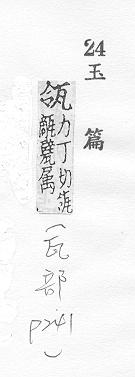 24
玉篇
瓴
力丁切
甓属
(瓦部
p241)